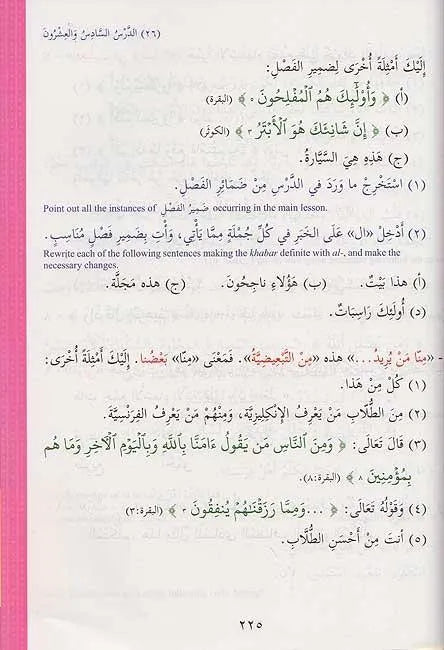 (٢٦) الدَّرْسُ السَّادِسُ وَالْعِشْرُونَ
إِلَيْكَ أَمْثِلَةً أُخْرَى لِضَمِيرِ الفَصْلِ:
(أ) ﴿ وَأُوْلَٰٓئِكَ هُمُ ٱلْمُفْلِحُونَ ٥ ﴾ (البقرة)
(ب) ﴿ إِنَّ شَانِئَكَ هُوَ ٱلْأَبْتَرُ ٣ ﴾ (الكوثر)
(ج) هَذِهِ هِيَ السَّيَّارَةُ.
(١) اسْتَخْرِجْ ما وَرَدَ في الدَّرْسِ مِنْ ضَمَائِرِ الفَصْلِ.
Point out all the instances of ضَمِيرُ الفَصْلِ occurring in the main lesson.
(٢) أَدْخِلْ «ال» عَلَى الخَبَرِ في كُلِّ جُمْلَةٍ مِمَّا يَأْتِي، وَأْتِ بِضَمِيرِ فَصْلٍ مُنَاسِبٍ.
Rewrite each of the following sentences making the khabar definite with al-, and make the
necessary changes.
(أ) هذا بَيْتٌ. (ب) هَؤُلَاءِ ناجِحُونَ. (ج) هذه مَجَلَّةٌ.
(د) أُولَئِكَ رَاسِبَاتٌ.
- «مِنَّا مَنْ يُرِيدُ...» هذه «مِنْ التَّبْعِيضِيَّةُ». فَمَعْنَى «مِنَّا» بَعْضُنا. إِلَيْكَ أَمْثِلَةً أُخْرَى:
(١) كُلْ مِنْ هَذا.
(٢) مِنَ الطُّلَّابِ مَنْ يَعْرِفُ الإِنْكِلِيزِيَّةَ، وَمِنْهُمْ مَنْ يَعْرِفُ الفِرَنْسِيَّةَ.
(٣) قَالَ تَعَالَى: ﴿ وَمِنَ ٱلنَّاسِ مَن يَقُولُ ءَامَنَّا بِٱللَّهِ وَبِٱلْيَوْمِ ٱلْأَخِرِ وَمَا هُم
بِمُؤْمِنِينَ ٨ ﴾ (البقرة:٨).
(٤) وَقَوْلُهُ تَعَالَى: ﴿ ...وَمِمَّا رَزَقْنَٰهُمْ يُنفِقُونَ ٣ ﴾ (البقرة:٣)
(٥) أنتَ مِنْ أَحْسَنِ الطُّلَّابِ.
٢٢٥